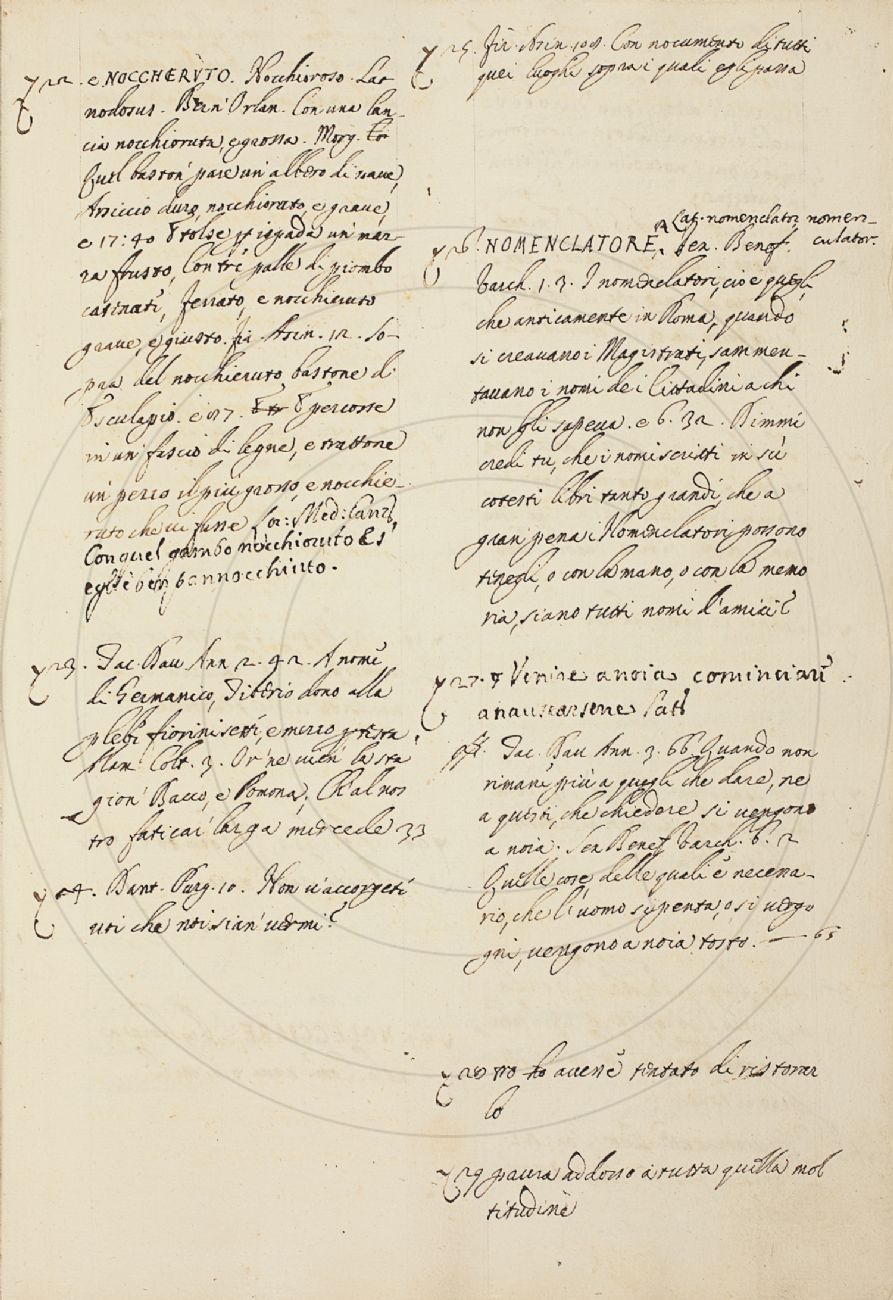 22. e NOCCHERVTO. Nocchioroso. Lat
nodosus. Bern Orlan. Con una lan-
cia nocchioruta, e grossa. Morg.
Quel baston' pare un' albero di nave,
Arsiccio duro, nocchioruto, e grave,
e 17: 40 E tolse p ispada un' maz-
za frusto, Con tre palle di piombo
, ferrato, e nocchieruto
grave, e giusto. fir Asin. 12. So-
pra del nocchieruto bastone di
Esculapio. e 87. E percosse
in un' fascio di legne, e trattone
un' pezzo il più grosso, e nocchie-
ruto che vi fusse Lor: Med: Canz,
Con quel gambo nocchioruto Es'
egli è ben pannocchiuto.
23. Tac. Dav Ann 2. 42. A nome
di Germanico, Tiberio donò alla
plebe fiorini sette, e mezzo p testa
Alam. Colt. 3. Or' ne vien' la sta
gion' Bacco, e Pomona, Ch' al nos
tro faticar larga mercede 33
24. Dant. Purg. 10. Non v'accorgete
voi che noi sian' vermi?
25. Fir. Asin. 108. Con nocumento di tutti
quei luoghi sopra i quali egli passa
Lat. nomenclator, nomen-
culator.
26. NOMENCLATORE. Sen. Benef.
Varch. 1. 3. I nomenclatori, cio è quegli,
che anticamente in Roma, quando
si creavano i Magistrati, rammen-
tavano i nomi dei Cittadini a chi
non gli sapeva. e 6. 32. Dimmi
credi tu, che i nomi scritti in su
cotesti libri tanto grandi, che a
gran' pena i Nomenclatori possono
tenegli, o con la mano, o con la memo
ria, siano tutti nomi d'amici?
27. Venire a noia cominciare
a nausearsene Lat
Tac. Dav Ann. 3. 66. Quando non
rimane più a quegli che dare, ne
a questi, che chiedere si vengono
a noia. Sen Benef Varch. 6. 2
Quelle cose, delle quali è necessa-
rio, che l'uomo si penta, o si vergo
gni, vengono a noia tosto. — 65
28 avere tentato di ristorar
lo
29 paura addosso a tutta quella mol
titudine